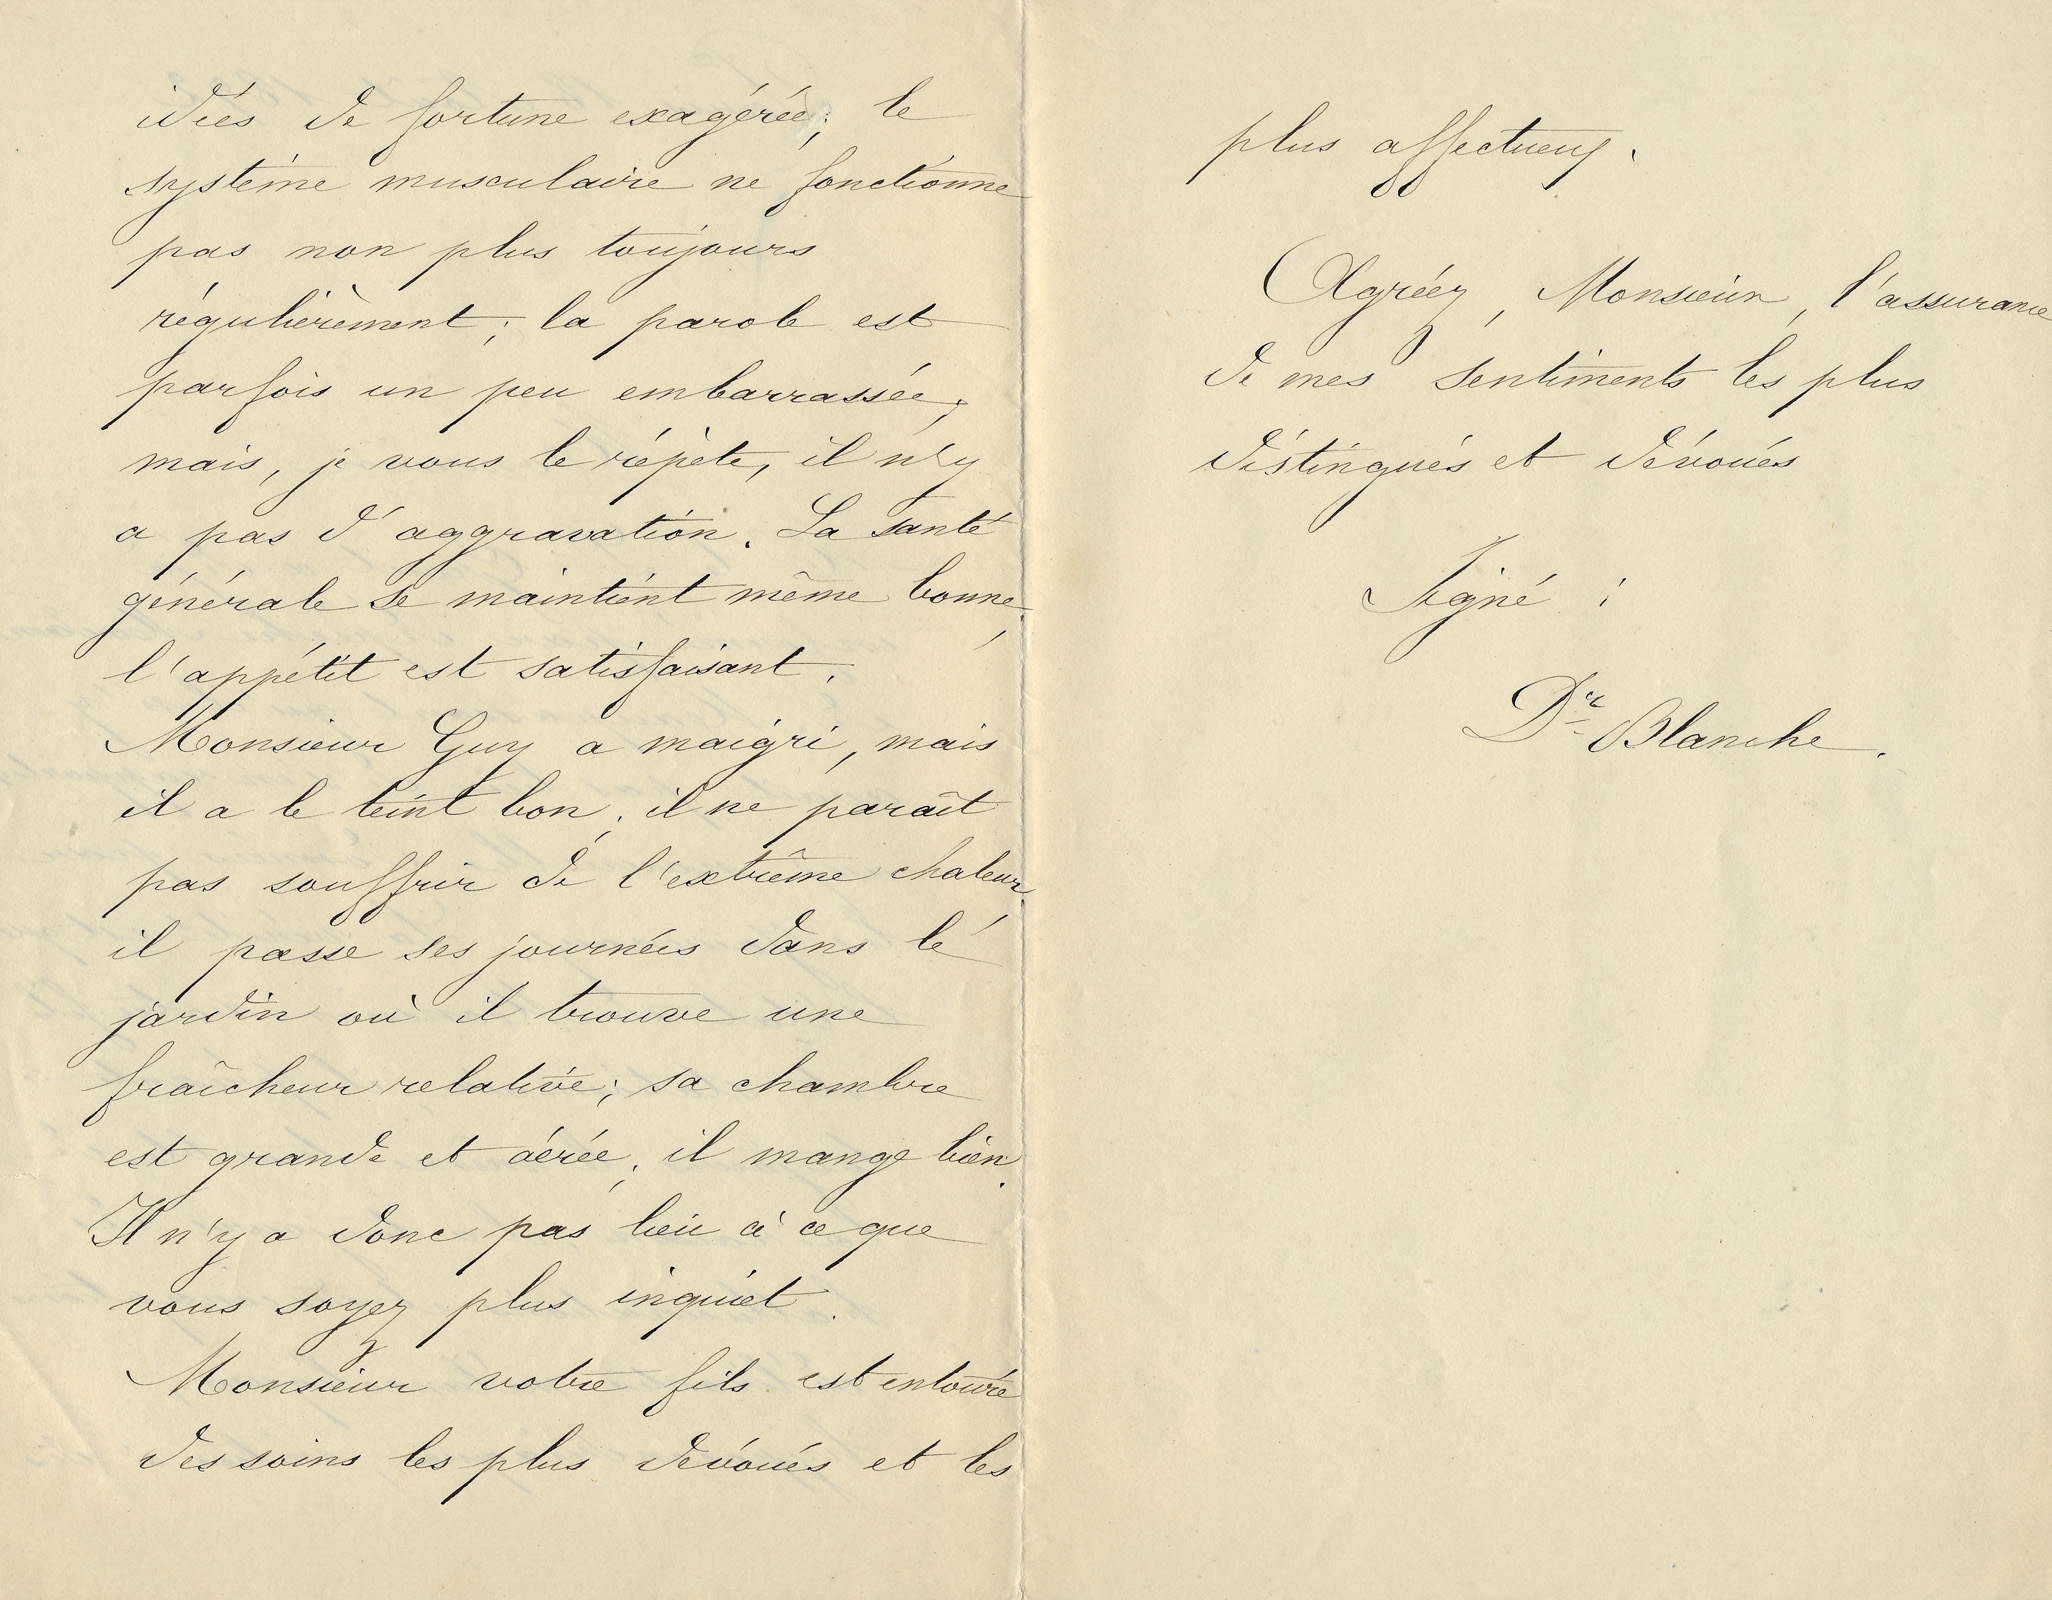 idées de fortune exagérée; le
système musculaire ne fonctionne
pas non plus toujours
régulièrement; la parole est
parfois un peu embarrassée,
mais, je vous le répète, il n'y
a pas d'aggravation. La santé
générale se maintient même bonne,
l'appétit est satisfaisant.
Monsieur Guy a maigri, mais
il a le teint bon; il ne paraît
pas souffrir de l'extrême chaleur,
il passe ses journées dans le
jardin où il trouve une
fraîcheur relative; sa chambre
est grande et aérée; il mange bien.
Il n'y a donc pas lieu à ce que
vous soyez plus inquiet.
Monsieur votre fils est entouré
des soins les plus dévoués et les
plus affectueux.
Agréez, Monsieur, l'assurance
de mes sentiments les plus
distingués et dévoués
Signé :
Dr Blanche.